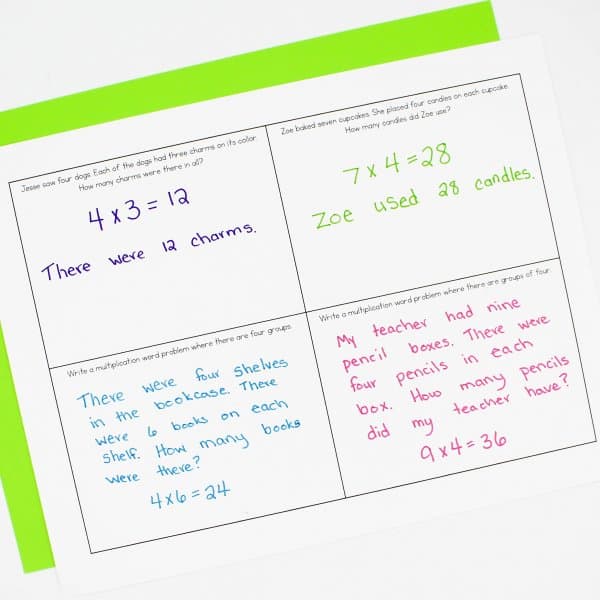 Jesse saw four dogs. Each of the dogs had three charms on its collar.
How many charms were there in all?
4 x 3 = 12
There were 12 charms.
Zoe baked seven cupcakes. She placed four candles on each cupcake.
How many candles did Zoe use?
7 x 4 = 28
Zoe used 28 candles.
Write a multiplication word problem where there are four groups.
There were four shelves
in the bookcase. There
were 6 books on each
shelf. How many books
were there?
4x6 = 24
Write a multiplication word problem where there are groups of four.
My teacher had nine
pencil boxes. There were
four pencils in each
box. How many pencils
did my teacher have?
9 x 4 = 36